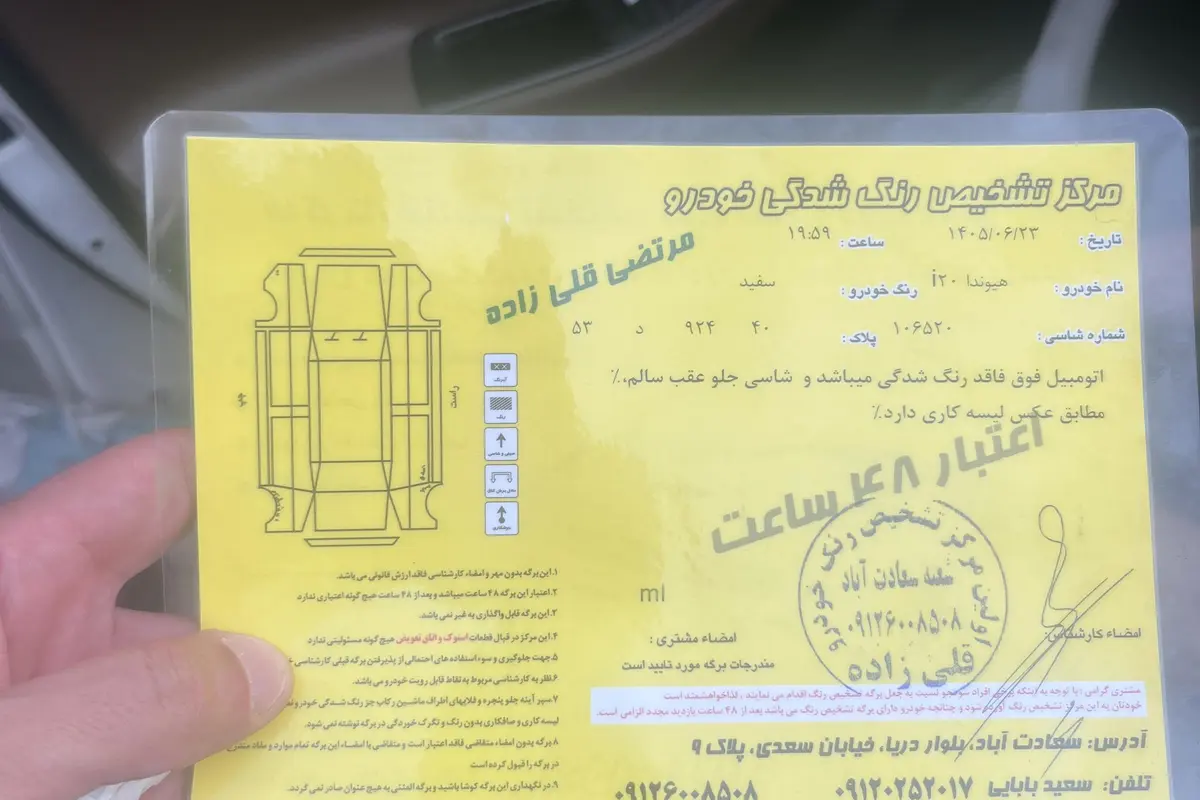 مرکز تشخیص رنگ شدگی خودرو
تاریخ: ۱۴۰۵/۰۶/۲۳ ساعت: ۱۹:۵۹
مرتضی قلی زاده
نام خودرو: هیوندا i۲۰ رنگ خودرو: سفید
شماره شاسی: ۱۰۶۵۲۰ پلاک: ۴۰ ۹۲۴ د ۵۳
اتومبیل فوق فاقد رنگ شدگی میباشد و شاسی جلو عقب سالم،٪
مطابق عکس لیسه کاری دارد.٪
اعتبار ۴۸ ساعت
راست
رنگ
اولین مرکز تشخیص رنگ خودرو
شعبه سعادت آباد
۰۹۱۲۶۰۰۸۵۰۸
قلی زاده
ml
امضاء کارشناس:
امضاء مشتری:
مندرجات برگه مورد تایید است
۱. این برگه بدون مهر و امضاء کارشناسی فاقد ارزش قانونی می باشد.
۲. اعتبار این برگه ۴۸ ساعت میباشد و بعد از ۴۸ ساعت هیچ گونه اعتباری ندارد.
۳. این برگه قابل واگذاری به غیر نمی باشد.
۴. این مرکز در قبال قطعات استوک و اتاق تعویض هیچ گونه مسئولیتی ندارد
۵. جهت جلوگیری و سوء استفاده های احتمالی از پذیرفتن برگه قبلی کارشناسی
۶. نظریه کارشناسی مربوط به نقاط قابل رویت خودرو می باشد.
۷. سپر آینه جلو پنجره و قلابهای اطراف ماشین رکاب جز رنگ شدگی خودرو
لیسه کاری و صافکاری بدون رنگ و تگرک خوردگی در برگه نوشته نمی شود.
۸. برگه بدون امضاء متقاضی فاقد اعتبار است و متقاضی با امضاء این برگه تمام موارد و مفاد
در برگه را قبول کرده است
۹. در نگهداری این برگه کوشا باشید و برگه المثنی به هیچ عنوان صادر نمی گردد.
مشتری گرامی: با توجه به اینکه برخی افراد سودجو نسبت به جعل برگه تشخیص رنگ اقدام می نمایند، لذا خواهشمند است
خودتان به این مرکز تشخیص رنگ آورده شود و چنانچه خودرو دارای برگه تشخیص رنگ می باشد بعد از ۴۸ ساعت بازدید مجدد الزامی است.
آدرس: سعادت آباد، بلوار دریا، خیابان سعدی، پلاک ۹
تلفن: سعید بابایی ۰۹۱۲۰۲۵۲۰۱۷ ۰۹۱۲۶۰۰۸۵۰۸